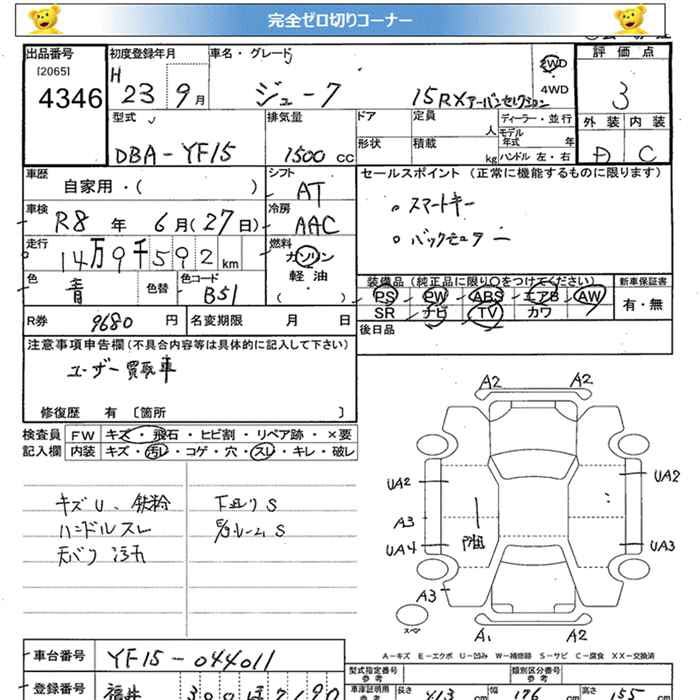 完全ゼロ切りコーナー
出品番号 初度登録年月 車名・グレード 評価点
[2065] 4346
H 23 9月 ジューク 15RXアーバンセレクション 2WD・4WD 3
型式 排気量 ドア 定員 人 ディーラー・並行 外装 内装
DBA-YF15 1500 cc 形状 積載 kg モデル年式 年 ハンドル 左・右 D C
車歴 シフト セールスポイント (正常に機能するものに限ります)
自家用・( ) AT
。スマートキー
車検 冷房
R8 年 6月(27日) AAC
。バックモニター
走行 燃料
14万9千592km ガソリン
軽油
( )
色 青 色替 色コード B51
装備品(純正品に限り○をつけてください) 新車保証書
PS・PW・ABS・エアB・AW
SR・ナビ・TV・カワ 有・無
R券 9680 円 名変期限 月 日
後日品
注意事項申告欄(不具合内容等は具体的に記入して下さい)
ユーザー買取車
修復歴 有 〔箇所 〕
検査員 FW キズ・飛石・ヒビ割・リペア跡・×要
記入欄 内装 キズ・汚レ・コゲ・穴・スレ・キレ・破レ
キズU、鉄粉 下廻りS
ハンドルスレ Fフレーム S
天バク 汚れ
A2 A2
UA2 UA2
A3
UA4 UA3
A3
スペア
A1 A2
A-キズ E-エクボ U-凹み W-補修跡 S-サビ C-腐食 XX-交換済
車台番号 YF15-044011
型式指定番号 参考 類別区分番号 参考
登録番号 福井 300 ほ 7190
車庫証明用 参考 長さ 413 cm 幅 176 cm 高さ 155 cm